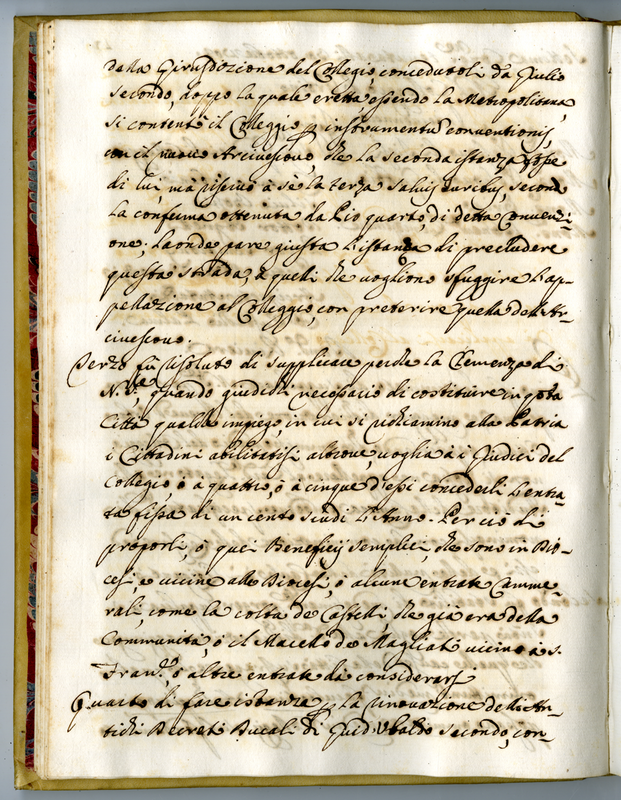 della Giurisdizione del Collegio, concedutoli da Giulio
secondo, doppo la quale eretta, essendo la Metropolitana,
si contentò il Colleggio p instrumentũ conventionis,
con il nuovo Arcivescovo, che la seconda istanza fosse
di lui, mà riservò à sè la terza salvis iuribus, second
la conferma ottenuta da Pio quarto, di detta Convenzi-
one; laonde pare giusta l'istanza di precludere
questa strada, à quelli che vogliono sfuggire l'ap-
pellazione al Colleggio, con preterire quella dell'Ar-
civescovo.
Terzo fù risoluto di supplicare perche la Clemenza di
N. Sre, quando giudichi necessario di costituire in qsta
Città qualche impiego, in cui si richiamino alla Patria
i Cittadini abilitatisi altrove, voglia à i Giudici del
Collegio, ò a quattro, ò à cinque d'essi concederli l'entra-
ta fissa di un cento scudi l'Anno. Per ciò di
proporli, ò quei Beneficij semplici, che sono in Dio-
cesi, e vicine alle Diocesi, ò alcune entrate Camme-
rali, come la colta de Castelli, che già era della
Communità, ò il Macello de Magliati vicino à S.
Franco, ò altre entrate da considerarsi
Quarto di fare istanza p la rinovazione delli An-
tichi Decreti Ducali di Guid'Ubaldo secondo, con-